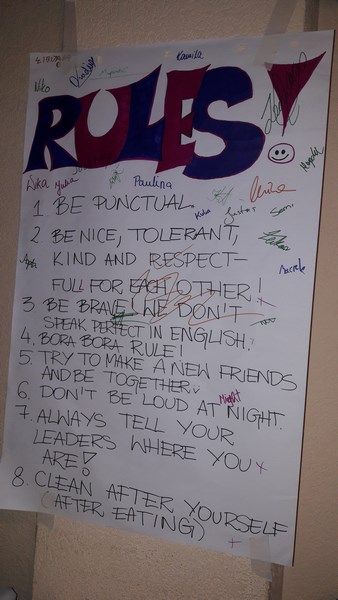 Kamila
Niko
RULES!
Paulina
Julia
Kuba
Justas
Semi
1. BE PUNCTUAL.
2. BE NICE, TOLERANT,
KIND AND RESPECT-
FULL FOR EACH OTHER!
3 BE BRAVE! WE DON'T
SPEAK PERFECT IN ENGLISH.
4. BORA BORA RULE!
5. TRY TO MAKE A NEW FRIENDS
AND BE TOGETHER.
6. DON'T BE LOUD AT NIGHT.
7. ALWAYS TELL YOUR
LEADERS WHERE YOU
ARE!
8. CLEAN AFTER YOURSELF
(AFTER EATING)